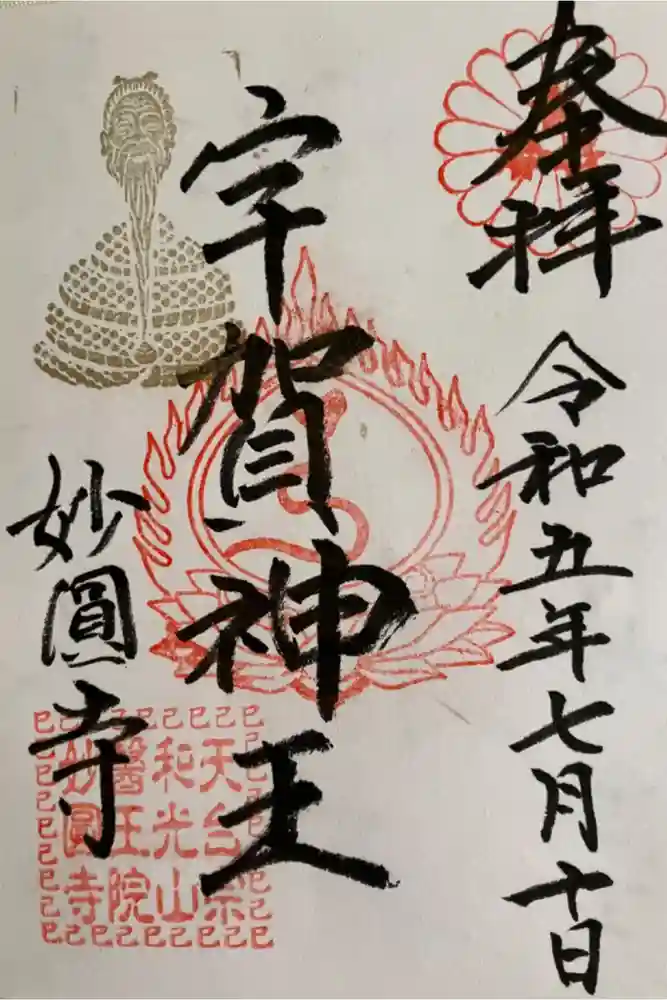 奉拝
令和五年七月十日
宇賀神王
妙圓寺
天台宗
和光山
醫王院
妙圓寺